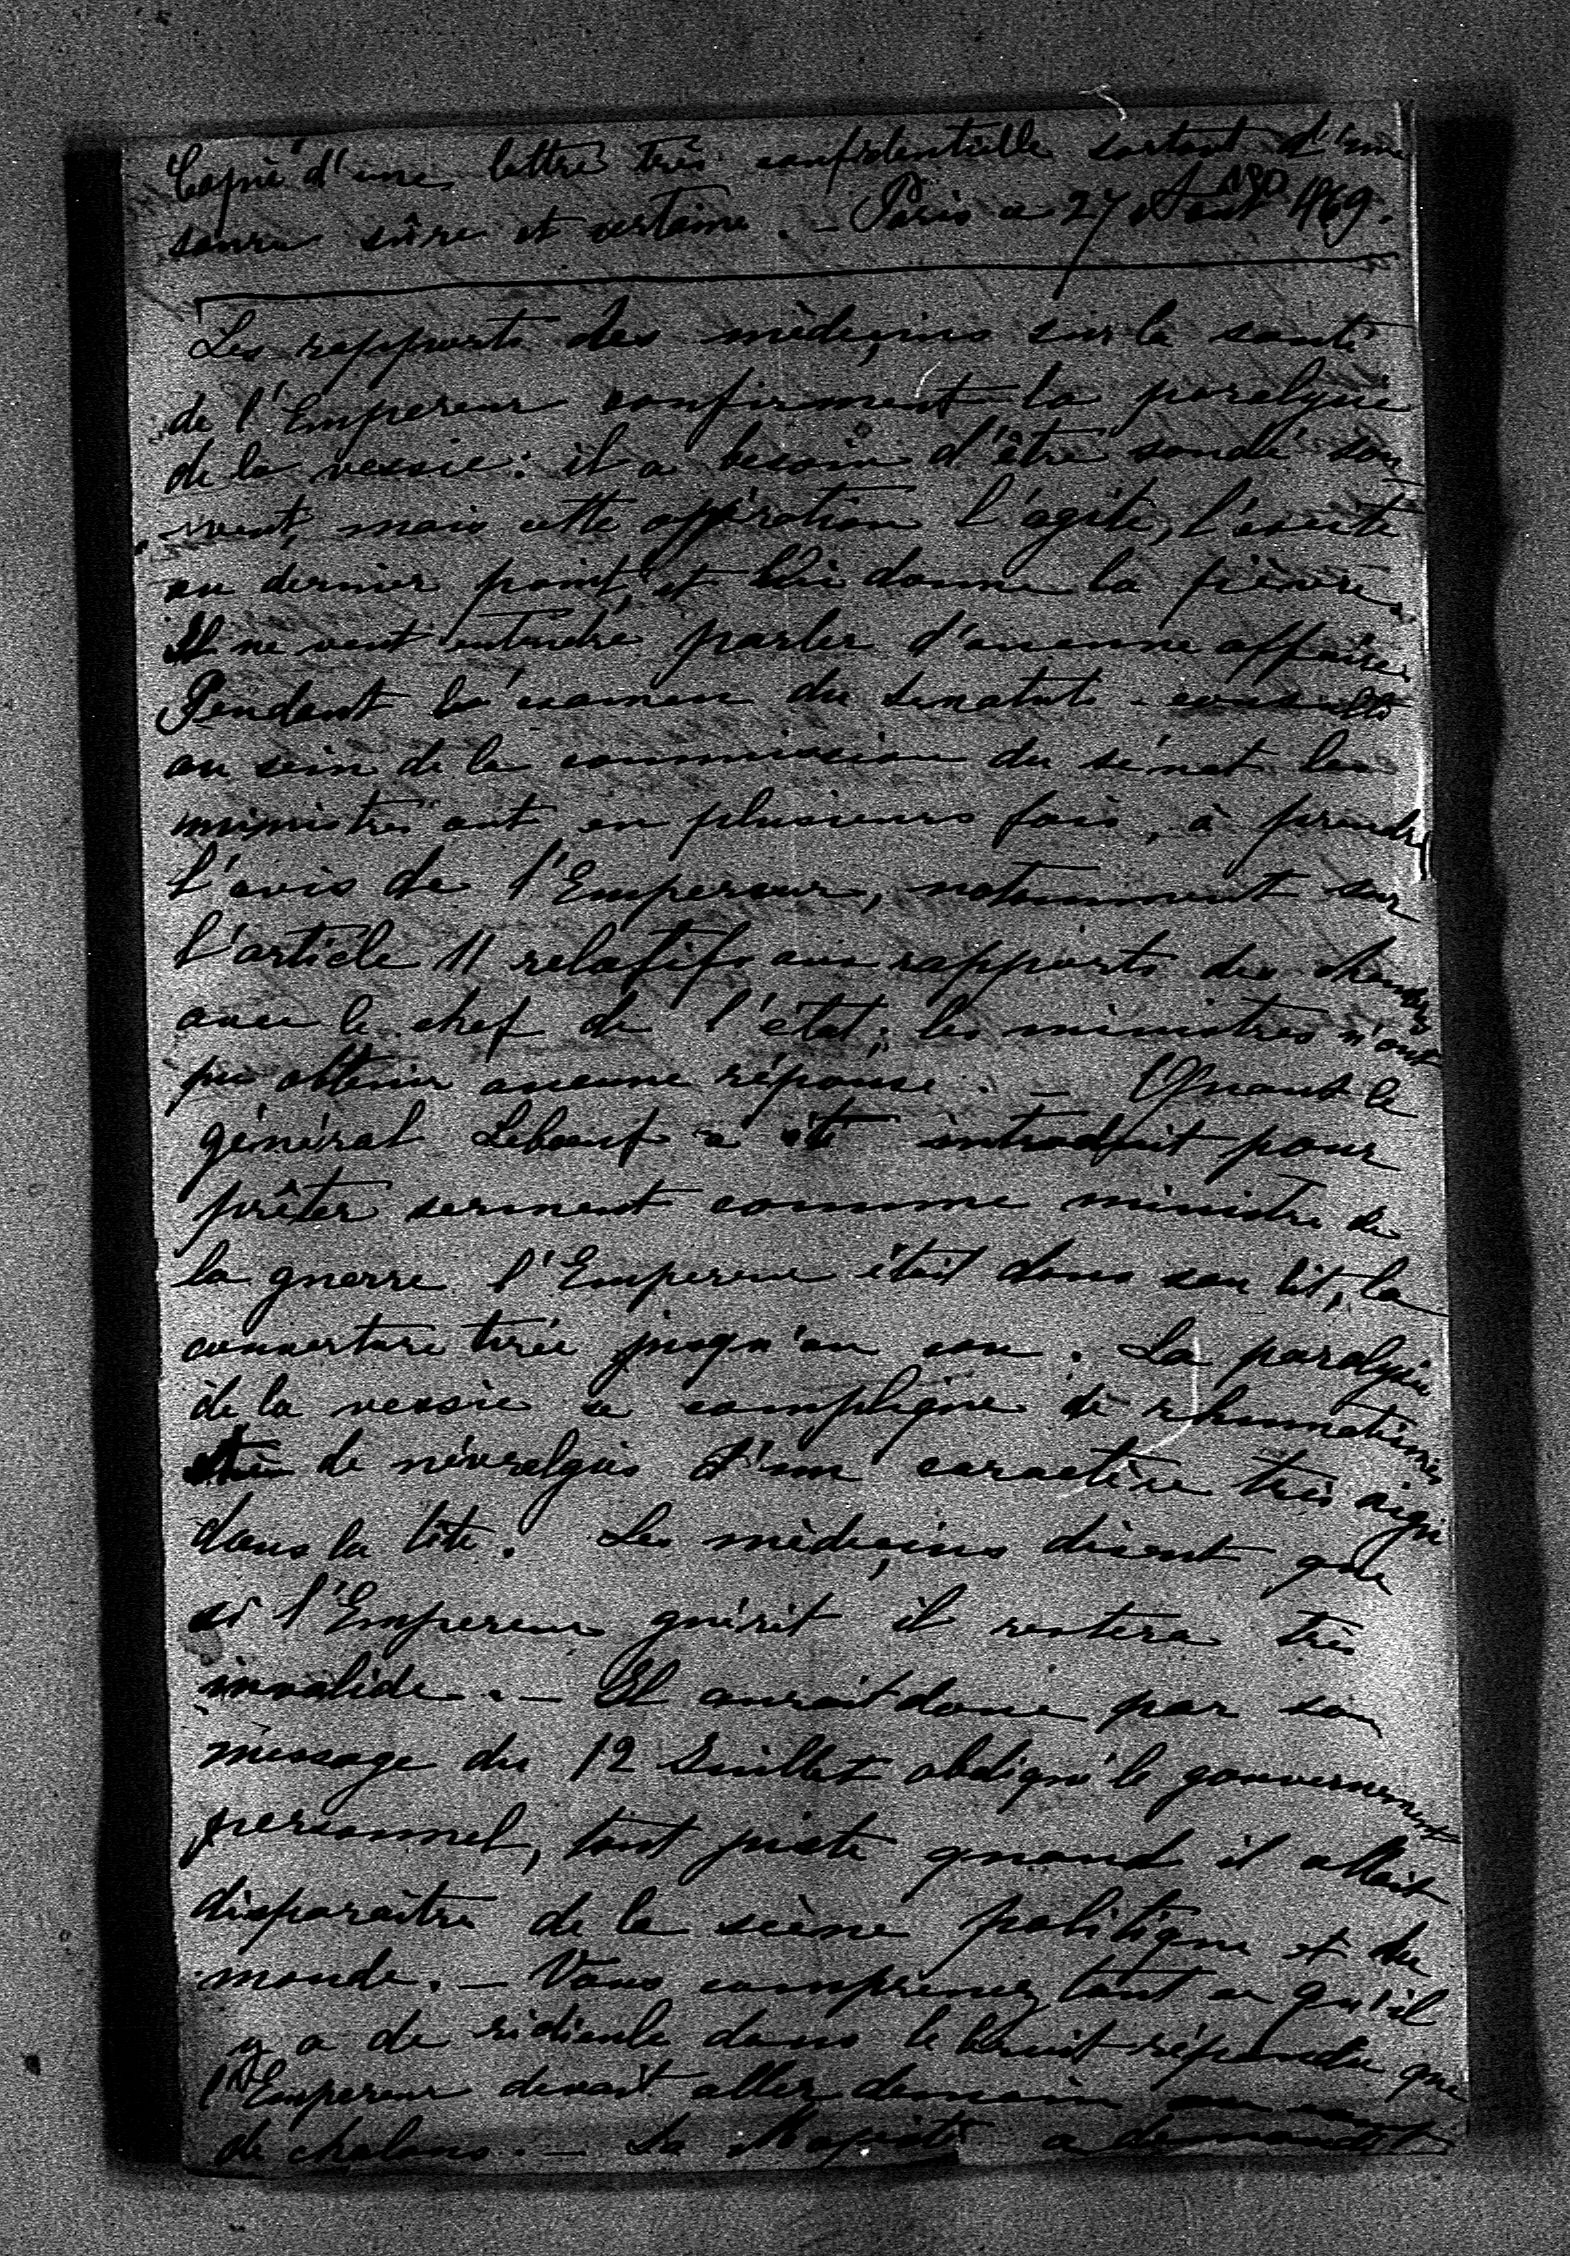 Copie d'une lettre très confidentielle sortant d'une
source sûre et certaine. — Paris a 27 Aout 1869.
Les rapports des mèdeçins sur la santé
de l'Empereur confirment la paralysie
de la vessie: il a besoin d'être sondé sou-
vent, mais cette opération l'agite, l'exite
au dernier point, et lui donne la fièvre.
Il ne veut entendre parler d'aucune affaire.
Pendant l'examen du senatus-consulte
au sein de la commission du sénat les
ministres ont eu plusieurs fois, à prendre
l'avis de l'Empereur, notamment sur
l'article 11 relatif aux rapports des chambres
avec le chef de l'état; les ministres n'ont
pu obtenir aucune réponse. — Quand le
général Leboeuf a été introduit pour
prêter serment comme ministre de
la guerre l'Empereur était dans son lit, la
couverture tirée jusqu'au cou. La paralysie
de la vessie se complique de rhumatismes
de névralgies d'un caractère très aigu
dans la tête. Les mèdeçins disent que
si l'Empereur guérit il restera très
invalide. — Il aurait donc par son
message du 12 Juillet abdiqué le gouvernement
personnel, tout juste quand il allait
disparaître de la scène politique et du
monde. — Vous comprenez tout ce qu'il
y a de ridicule dans le bruit répandu que
l'Empereur devait aller demain au camp
de chalons. — Sa Majesté a demandé